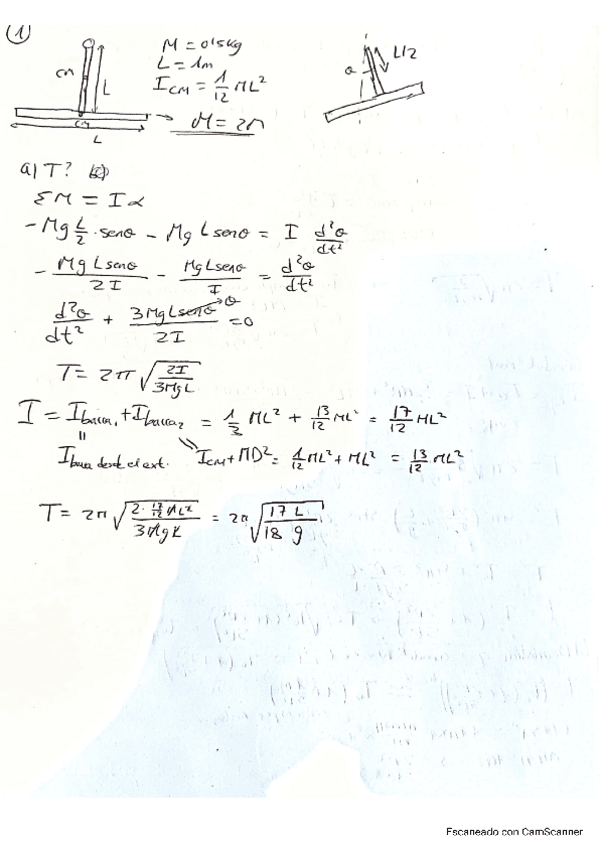 1
M = 0'5kg
L = 1m
I_CM = 1/12 ML²
M = 2M
CM
L
CM
L
θ
L/2
a) T?
ΣM = Iα
-Mg L/2 · senθ - MgLsenθ = I d²θ/dt²
- MgLsenθ/2I - MgLsenθ/I = d²θ/dt²
d²θ/dt² + 3MgLsenθ/2I = 0
θ
T = 2π √(2I/3MgL)
I = I barra₁ + I barra₂ = 1/3 ML² + 13/12 ML² = 17/12 ML²
I barra desde el ext. I_CM + MD² = 1/12 ML² + ML² = 13/12 ML²
T = 2π √(2 · 17/12 ML²/3MgL) = 2π √(17 L/18 g)
Escaneado con CamScanner